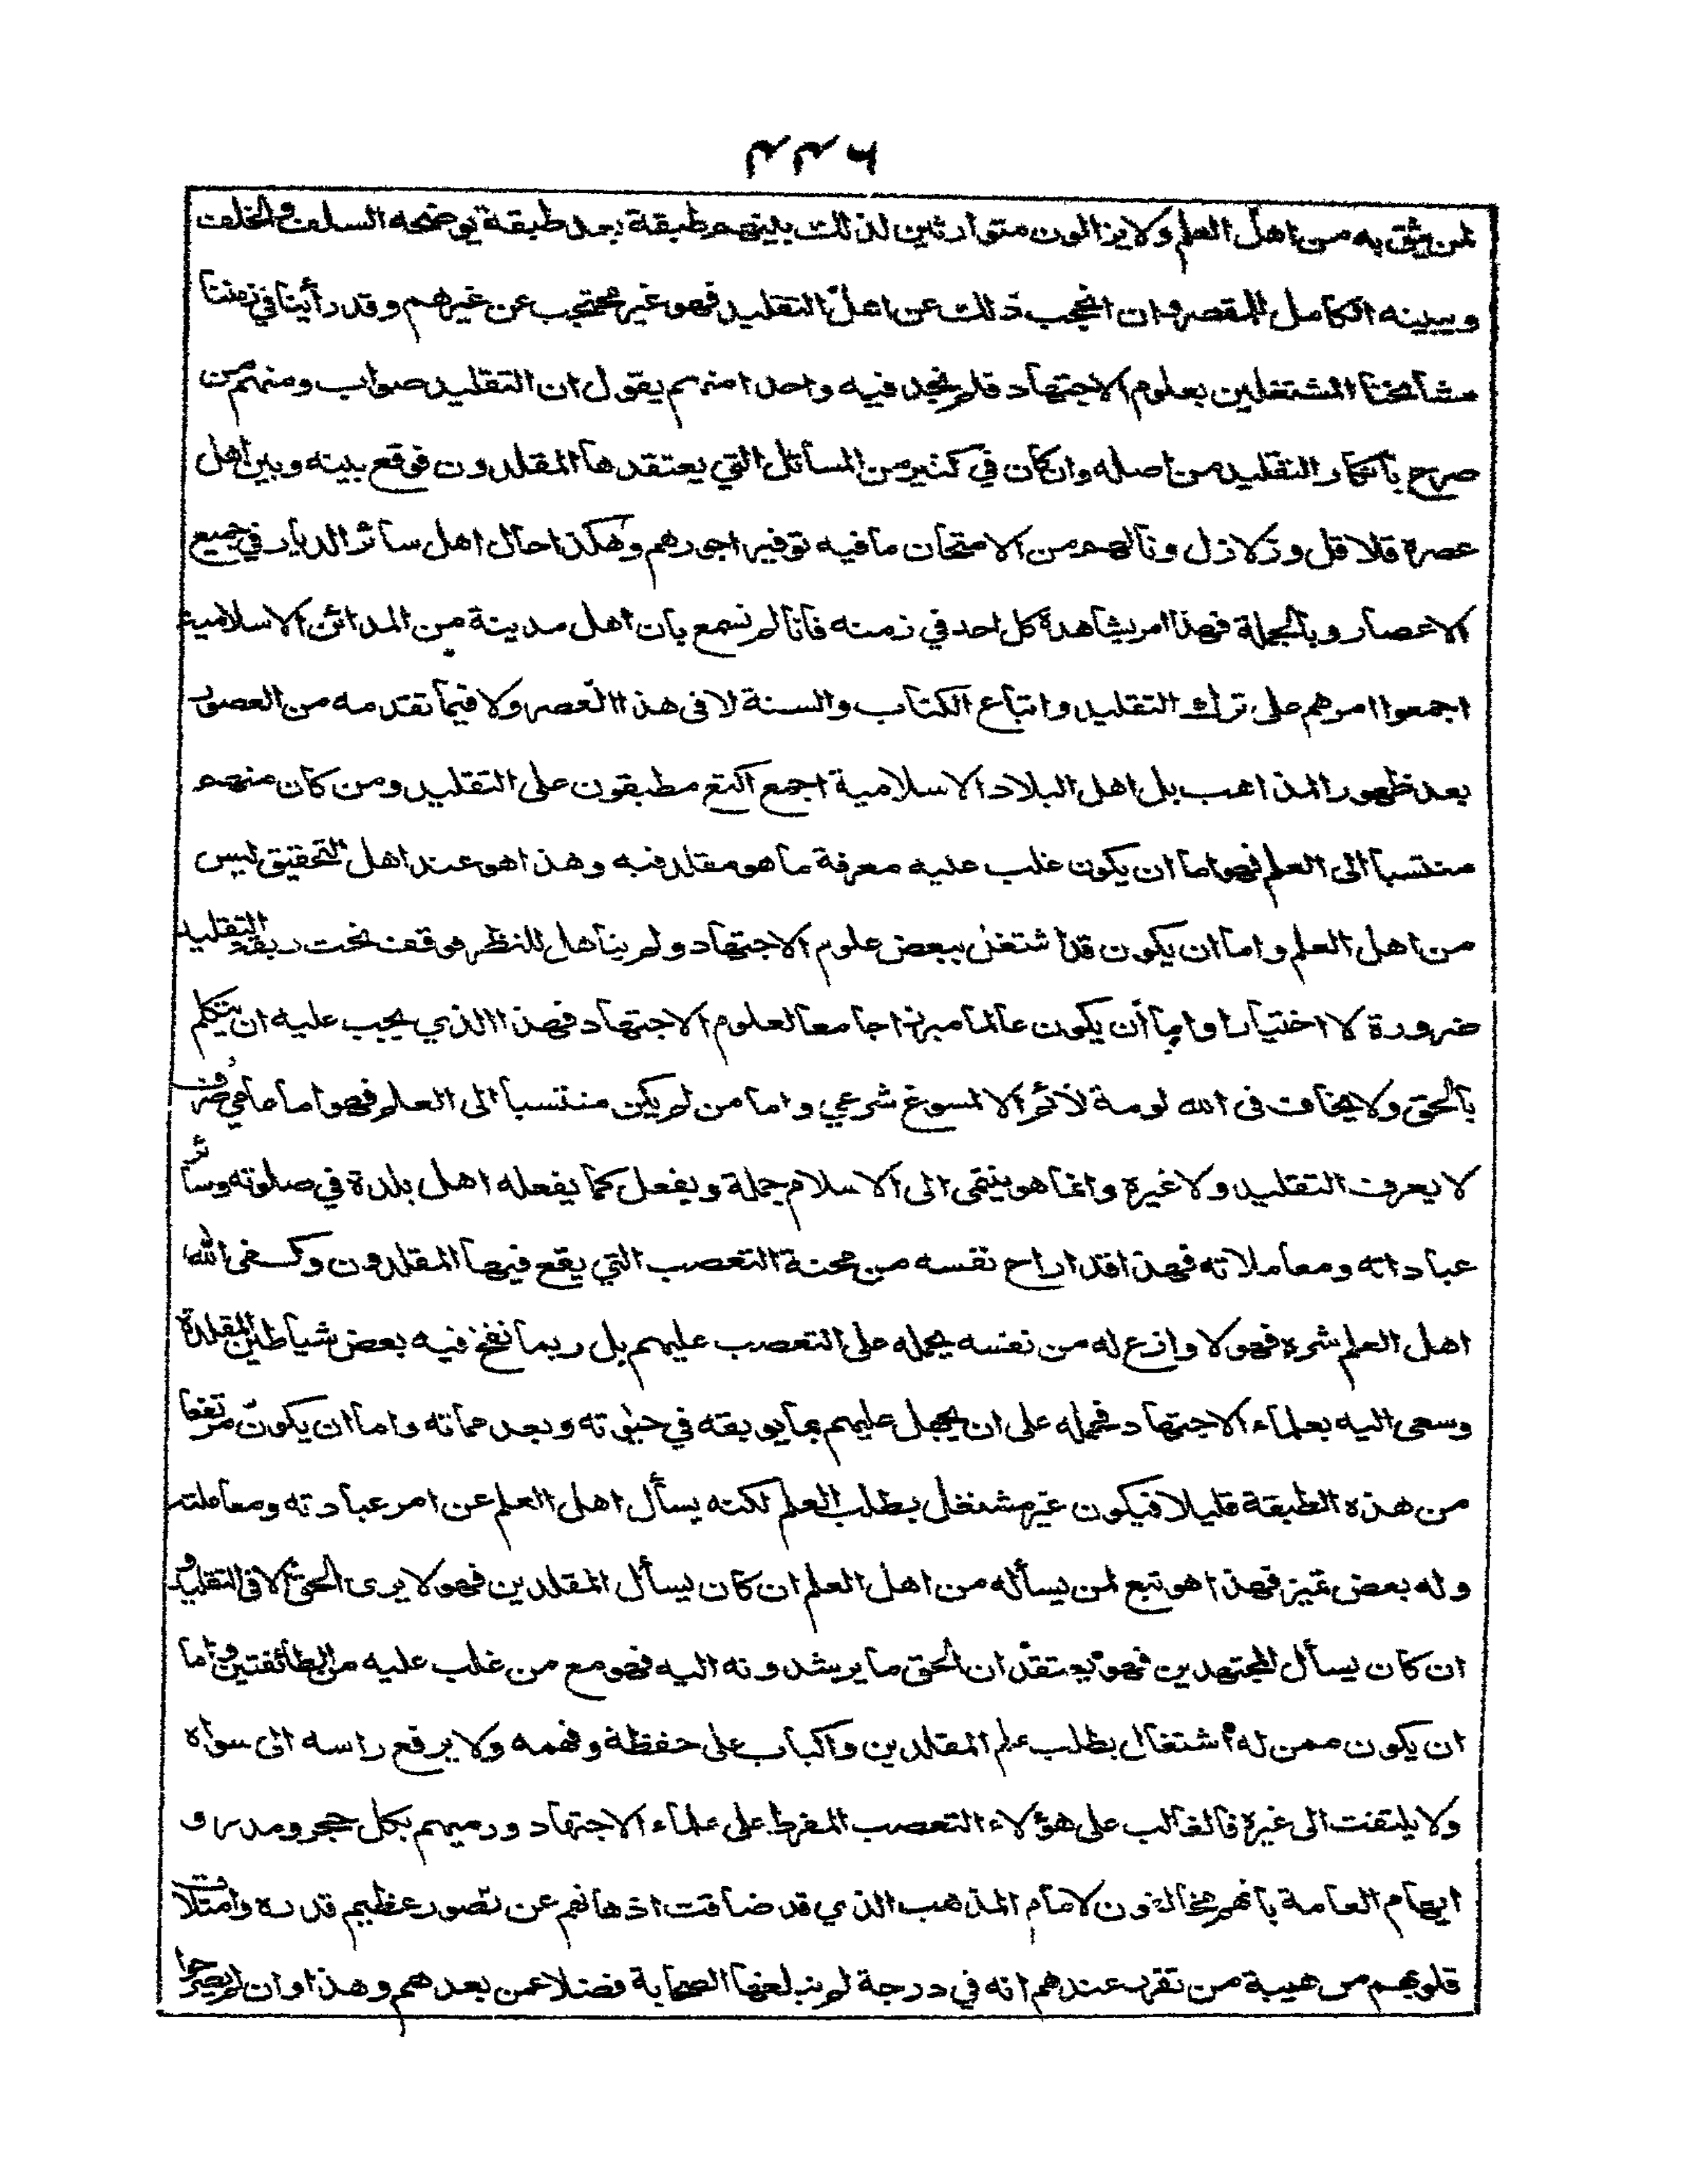 ٢٣٦
لمن يثق به من اهل العلم ولا يزالون متوارثين لذلك بينهم طبقة بعد طبقة يوضحه السلف للخلف
ويبينه الكامل للمقصر وان انحجب ذلك عن اهل التقليد فهو غير محتجب عن غيرهم وقد رأينا في زمننا
مشائخنا المشتغلين بعلوم الاجتهاد فلم نجد فيه واحدا منهم يقول ان التقليد صواب ومنهم من
صرح بانكار التقليد من اصله وان كان في كثير من المسائل التي يعتقدها المقلدون فوقع بينه وبين اهل
عصره قلاقل وزلازل ونالهم من الامتحان ما فيه توفير اجورهم وهكذا حال اهل سائر الديار في جميع
الاعصار وبالجملة فهذا امر يشاهده كل احد في زمنه فانا لم نسمع بان اهل مدينة من المدائن الاسلامية
اجمعوا امرهم على ترك التقليد واتباع الكتاب والسنة لا فى هذا العصر ولا فيما تقدمه من العصور
بعد ظهور المذاهب بل اهل البلاد الاسلامية اجمع اكتع مطبقون على التقليد ومن كان منهم
منتسبا الى العلم فهو اما ان يكون غلب عليه معرفة ما هو مقلد فيه وهذا هو عند اهل التحقيق ليس
من اهل العلم واما ان يكون قد اشتغل ببعض علوم الاجتهاد ولم يتاهل للنظر فوقف تحت ربقة التقليد
ضرورة لا اختيارا واما أن يكون عالما مبرزا جامعا لعلوم الاجتهاد فهذا الذي يجب عليه ان يتكلم
بالحق ولا يخاف فى الله لومة لائم الا لمسوغ شرعي واما من لم يكن منتسبا الى العلم فهو اما عامي صرف
لا يعرف التقليد ولا غيره وانما هو ينتمى الى الاسلام جملة ويفعل كما يفعله اهل بلده في صلوته وسائر
عباداته ومعاملاته فهذا قد اراح نفسه من محنة التعصب التي يقع فيها المقلدون وكفى الله
اهل العلم شره فهو لا وازع له من نفسه يحمله على التعصب عليهم بل ربما نفخ فيه بعض شياطين المقلدة
وسعى اليه بعلماء الاجتهاد فحمله على ان يجهل عليهم بما يوبقه في حيوته وبعد مماته واما ان يكون مرتفعا
من هذه الطبقة قليلا فيكون غير مشتغل بطلب العلم لكنه يسأل اهل العلم عن امر عبادته ومعاملته
وله بعض تميز فهذا هو تبع لمن يسأله من اهل العلم ان كان يسأل المقلدين فهو لا يرى الحق الا فى التقليد و
ان كان يسأل المجتهدين فهو يعتقد ان الحق ما يرشدونه اليه فهو مع من غلب عليه من الطائفتين واما
ان يكون ممن له اشتغال بطلب علم المقلدين واكباب على حفظه وفهمه ولا يرفع راسه الى سواه
ولا يلتفت الى غيره فالغالب على هؤلاء التعصب المفرط على علماء الاجتهاد ورميهم بكل حجر ومدر و
ايهام العامة بانهم مخالفون لامام المذهب الذي قد ضاقت اذهانهم عن تصور عظيم قدره وامتلات
قلوبهم من هيبة من تقرر عندهم انه في درجة لم يبلغها الصحابة فضلا عمن بعدهم وهذا وان لم يصرحوا